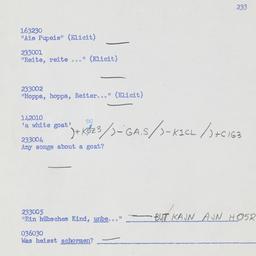 233
163230
"Aie Pupeie" (Elicit)
233001
"Reite, reite ..." (Elicit)
233002
"Hoppa, hoppa, Reiter..." (Elicit)
142010
'a white goat'
233004
Any songs about a goat?
233005
"Ein hübsches Kind, unbe..." BUT KAJN AJN HOSR
036030
Was heisst schermen?